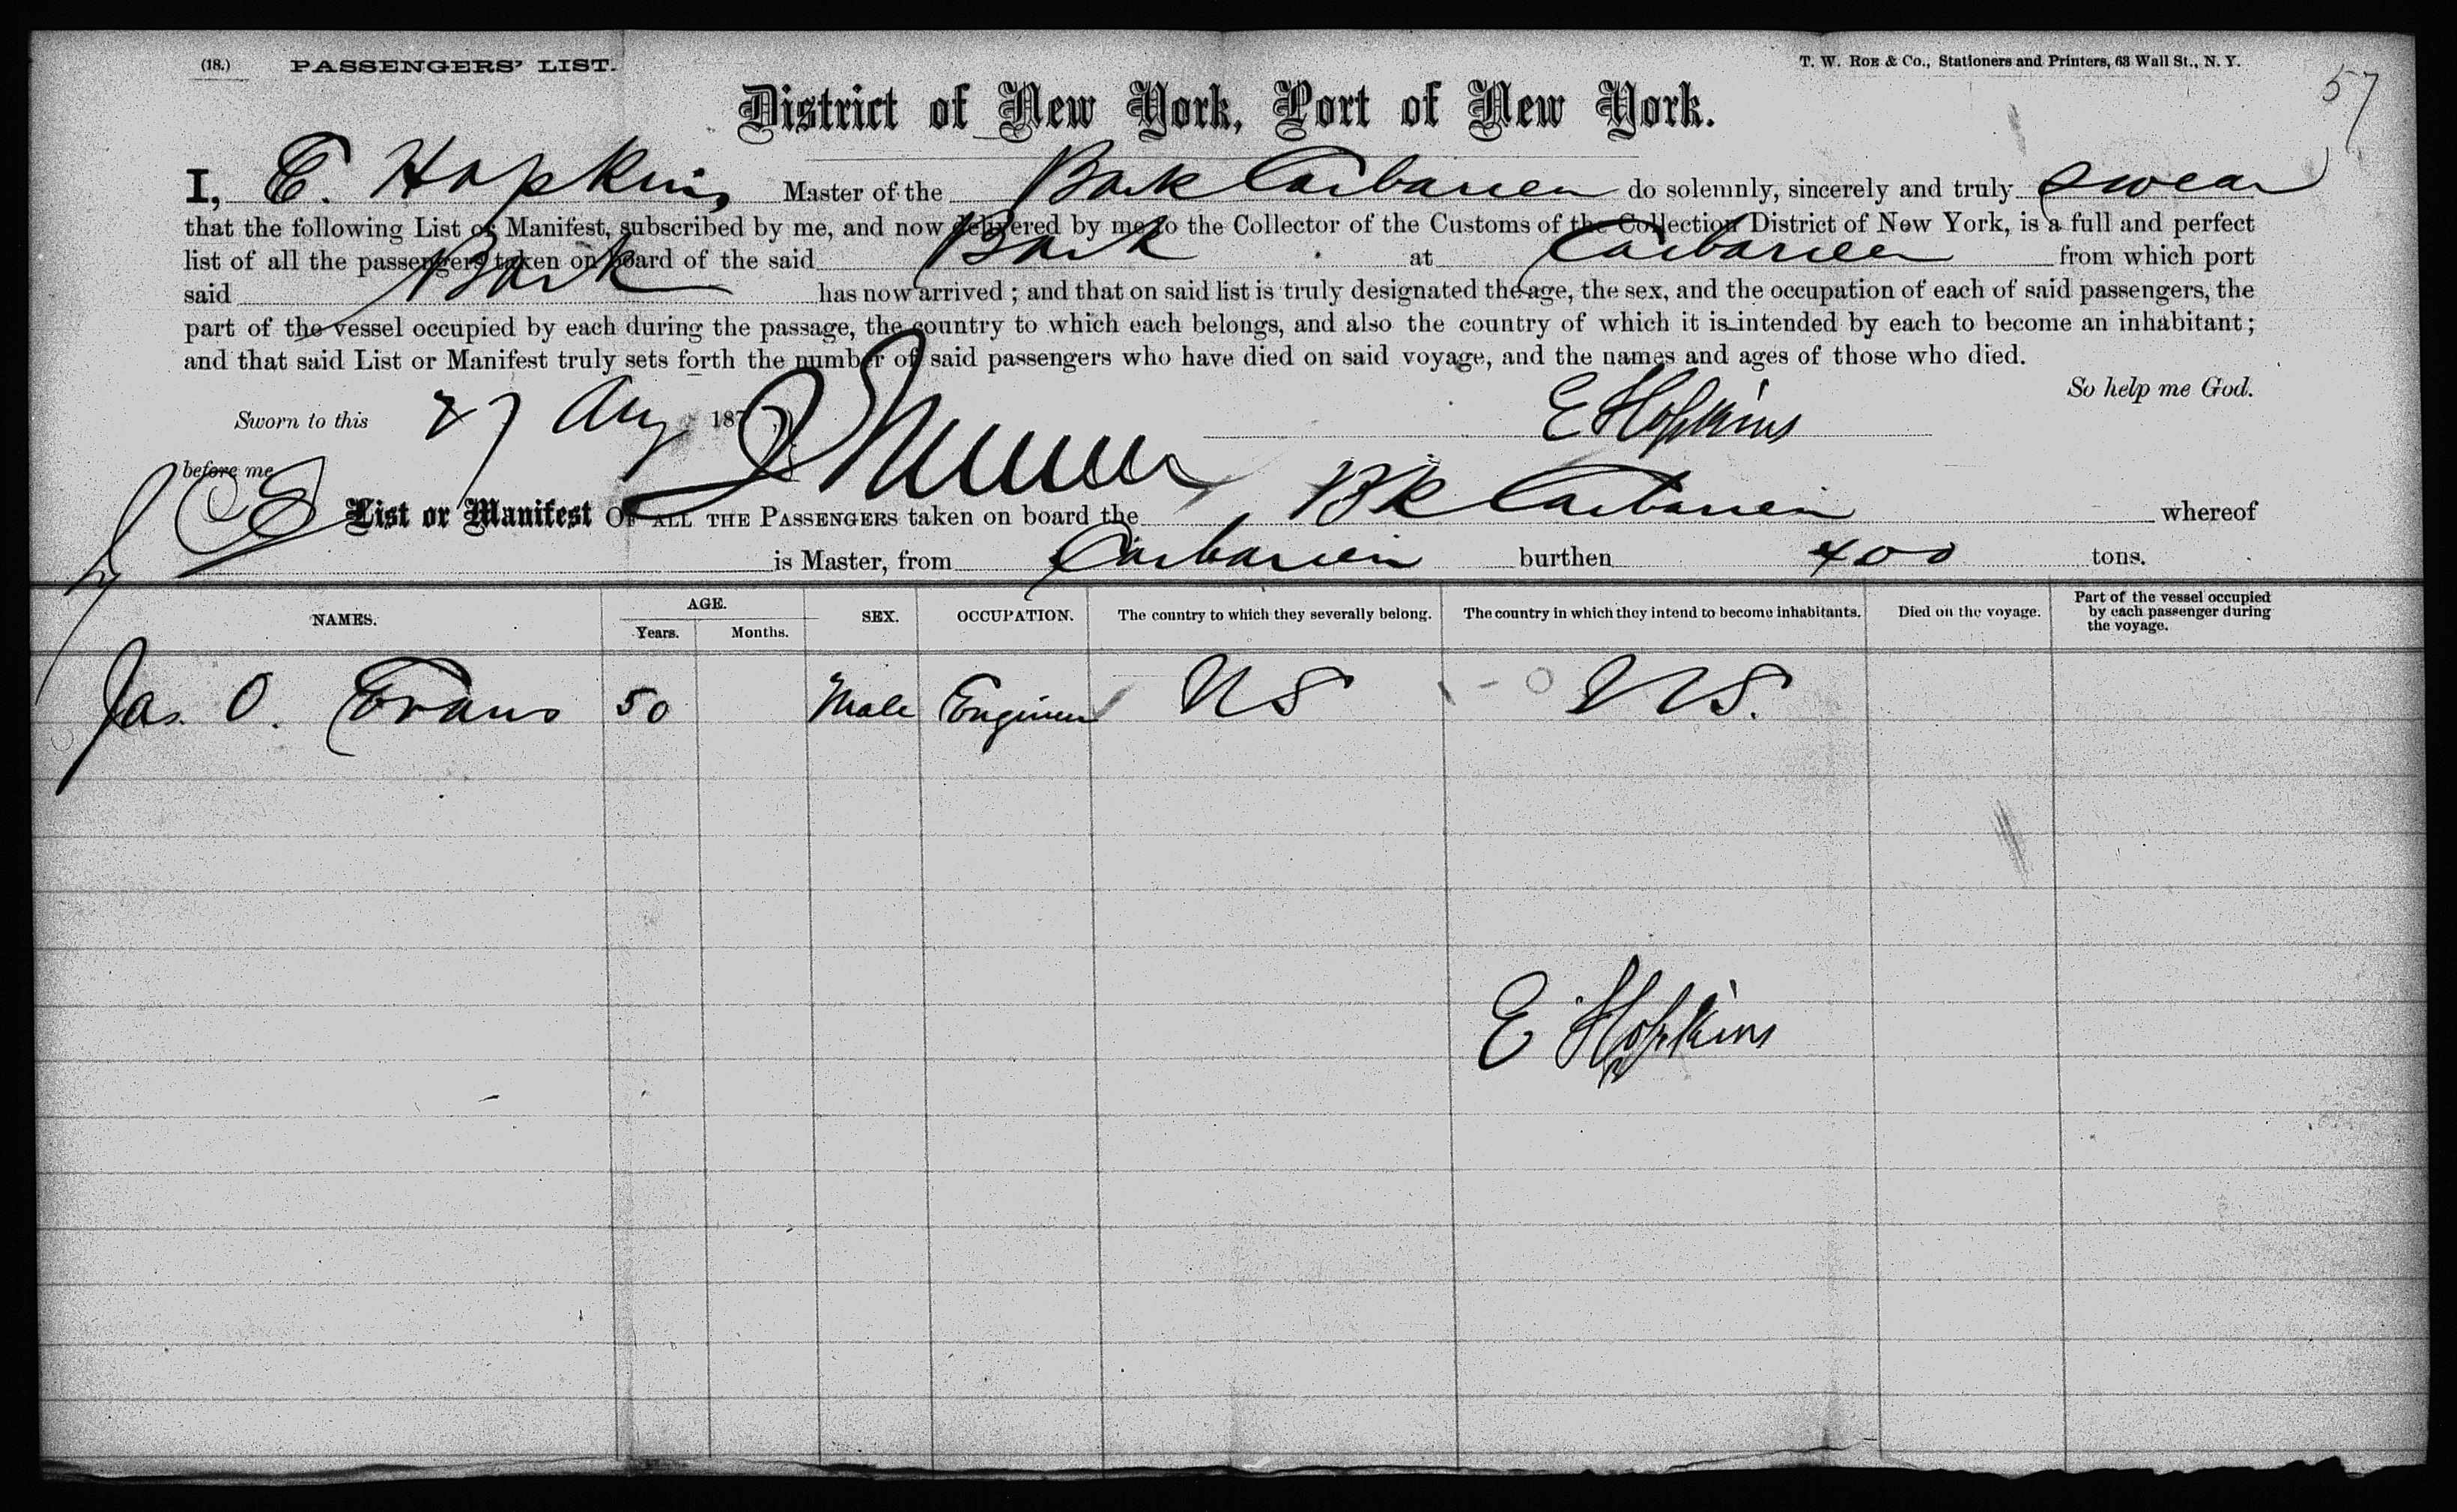 (18.) PASSENGERS' LIST. T. W. ROE & Co., Stationers and Printers, 63 Wall St., N. Y.
57
District of New York, Port of New York.
I, E. Hopkins Master of the Bark Caibarien do solemnly, sincerely and truly swear
that the following List or Manifest, subscribed by me, and now delivered by me to the Collector of the Customs of the Collection District of New York, is a full and perfect
list of all the passengers taken on board of the said Bark at Caibarien from which port
said Bark has now arrived; and that on said list is truly designated the age, the sex, and the occupation of each of said passengers, the
part of the vessel occupied by each during the passage, the country to which each belongs, and also the country of which it is intended by each to become an inhabitant;
and that said List or Manifest truly sets forth the number of said passengers who have died on said voyage, and the names and ages of those who died.
So help me God.
Sworn to this 27 Aug 187 E Hopkins
before me
List or Manifest OF ALL THE PASSENGERS taken on board the Bk Caibarien whereof
is Master, from Caibarien burthen 400 tons.
NAMES. AGE. Years. Months. SEX. OCCUPATION. The country to which they severally belong. The country in which they intend to become inhabitants. Died on the voyage. Part of the vessel occupied by each passenger during the voyage.
Jas. O. Evans 50 Male Engineer US US.
E Hopkins